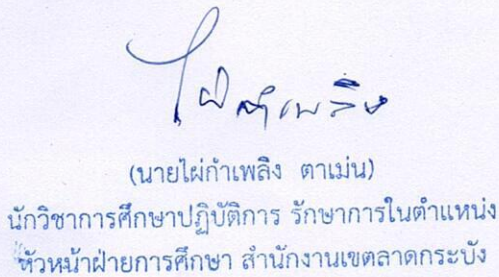 ไผ่กำเพลิง
(นายไผ่กำเพลิง ตาเม่น)
นักวิชาการศึกษาปฏิบัติการ รักษาการในตำแหน่ง
หัวหน้าฝ่ายการศึกษา สำนักงานเขตลาดกระบัง